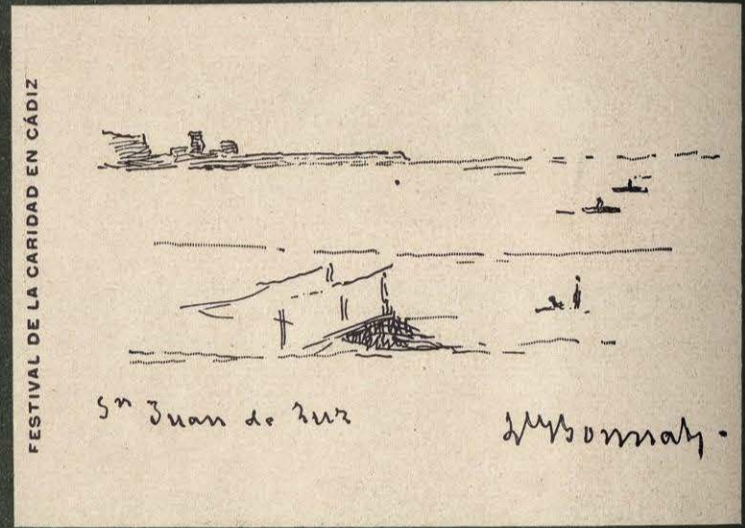 FESTIVAL DE LA CARIDAD EN CÁDIZ
Sn Juan de Luz
Ln Bonnat